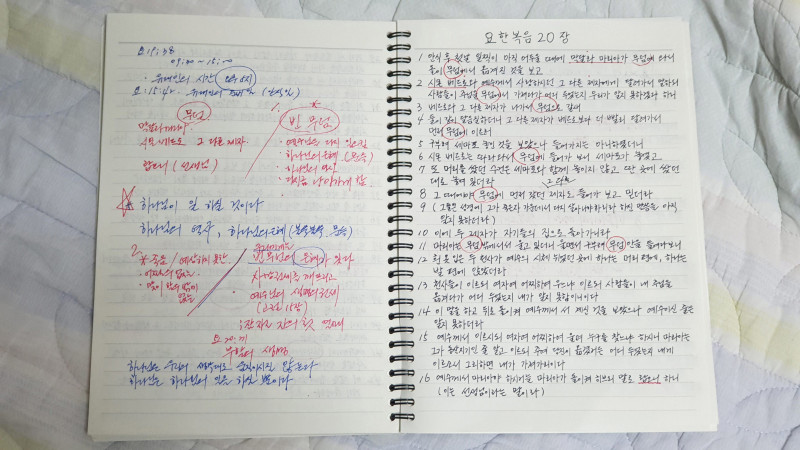 요 19:38
09:00 - 15:00
· 유대인의 시간
요 15:42
무덤
막달라 마리아
시몬 베드로 그 다른 제자
랍오니 (선생님)
1. 빈 무덤
· 예수님은 다시
· 하나님의 은혜
· 하나님의 역사
하나님이 일 하실 것이다
하나님의 역사, 하나님의 은혜
2.
은혜가 있다
예수님의 생명의 권세
(고전 15장)
요 20:
하나님은 우리의 생각대로 움직이시지 않는다
하나님은 하나님의 일을 하실 뿐이다
요한복음 20장
1 안식 후 첫날 일찍이 아직 어두울 때에 막달라 마리아가 무덤에 와서
돌이 무덤에서 옮겨진 것을 보고
2 시몬 베드로와 예수께서 사랑하시던 그 다른 제자에게 달려가서 말하되
사람들이 주님을 무덤에서 가져다가 어디 두었는지 우리가 알지 못하겠다 하니
3 베드로와 그 다른 제자가 나가서 무덤으로 갈새
4 둘이 같이 달음질하더니 그 다른 제자가 베드로보다 더 빨리 달려가서
먼저 무덤에 이르러
5 구부려 세마포 놓인 것을 보았으나 들어가지는 아니하였더니
6 시몬 베드로는 따라와서 무덤에 들어가 보니 세마포가 놓였고
7 또 머리를 쌌던 수건은 세마포와 함께 놓이지 않고 딴 곳에 쌌던
대로 놓여 있더라
8 그 때에야 무덤에 먼저 갔던 그 다른 제자도 들어가 보고 믿더라
9 (그들은 성경에 그가 죽은 자 가운데서 다시 살아나야 하리라 하신 말씀을 아직
알지 못하더라)
10 이에 두 제자가 자기들의 집으로 돌아가니라
11 마리아는 무덤 밖에 서서 울고 있더니 울면서 구부려 무덤 안을 들여다보니
12 흰 옷 입은 두 천사가 예수의 시체 뉘었던 곳에 하나는 머리 편에, 하나는
발 편에 앉았더라
13 천사들이 이르되 여자여 어찌하여 우느냐 이르되 사람들이 내 주님을
옮겨다가 어디 두었는지 내가 알지 못함이니이다
14 이 말을 하고 뒤로 돌이켜 예수께서 서 계신 것을 보았으나 예수이신 줄은
알지 못하더라
15 예수께서 이르시되 여자여 어찌하여 울며 누구를 찾느냐 하시니 마리아는
그가 동산지기인 줄 알고 이르되 주여 당신이 옮겼거든 어디 두었는지 내게
이르소서 그리하면 내가 가져가리이다
16 예수께서 마리아야 하시거늘 마리아가 돌이켜 히브리 말로 랍오니 하니
(이는 선생님이라는 말이라)